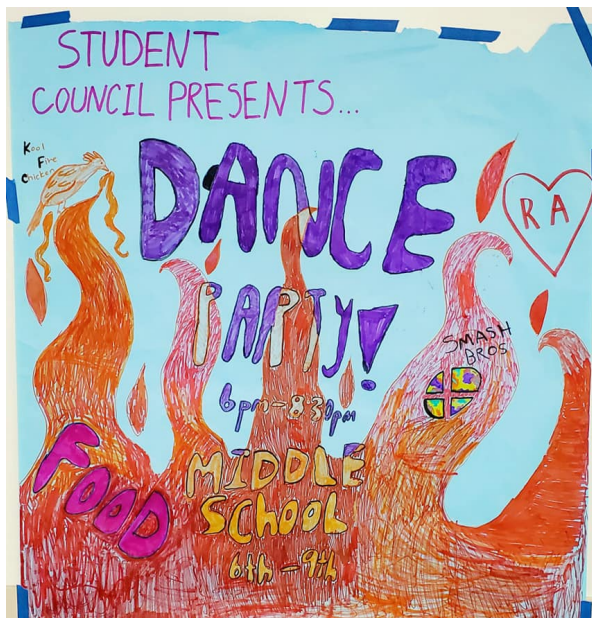 STUDENT
COUNCIL PRESENTS...
Kool
Fire
Chicken
DANCE
R A
PARTY!
SMASH
BROS
6pm-8:30pm
FOOD
MIDDLE
SCHOOL
6th-9th